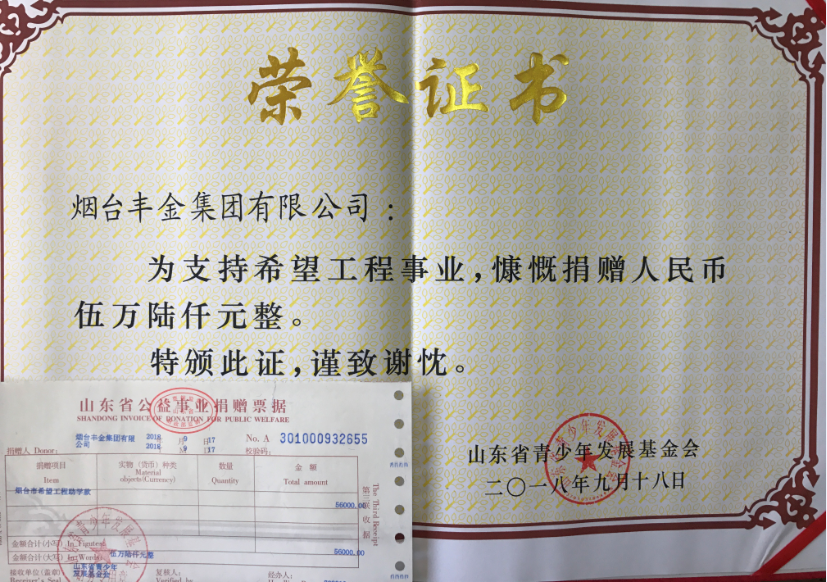 荣誉证书
烟台丰金集团有限公司：
为支持希望工程事业，慷慨捐赠人民币
伍万陆仟元整。
特颁此证，谨致谢忱。
山东省青少年发展基金会
二〇一八年九月十八日
山东省公益事业捐赠票据
SHANDONG INVOICE OF DONATION FOR PUBLIC WELFARE
捐赠人 Donor: 烟台丰金集团有限公司 2018 9 17 No. A 301000932655
校验码:
捐赠项目 实物（货币）种类 数量 金额
Item Material objects(Currency) Quantity Total amount
烟台市希望工程助学款
56000.00
金额合计(小写) In Figures 56000.00
金额合计(大写) In Words 伍万陆仟元整
接收单位(盖章) 山东省青少年发展基金会 复核人: 经办人:
Receiver's Seal Verified by
The Third Receipt